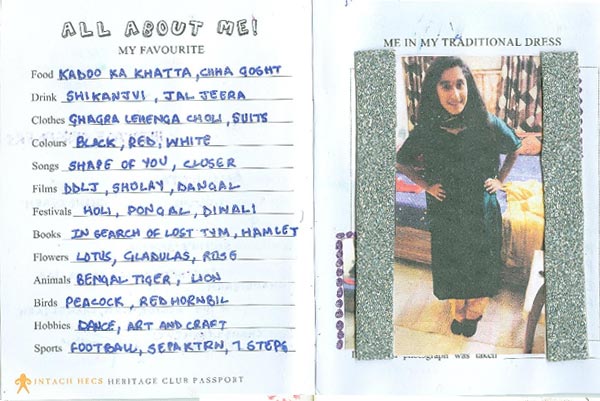 ALL ABOUT ME!
MY FAVOURITE
Food KADOO KA KHATTA, CHHA GOSHT
Drink SHIKANJVI, JAL JEERA
Clothes GHAGRA LEHENGA CHOLI, SUITS
Colours BLACK, RED, WHITE
Songs SHAPE OF YOU, CLOSER
Films DDLJ, SHOLAY, DANGAL
Festivals HOLI, PONGAL, DIWALI
Books IN SEARCH OF LOST TYM, HAMLET
Flowers LOTUS, GLADULAS, ROSE
Animals BENGAL TIGER, LION
Birds PEACOCK, RED HORNBIL
Hobbies DANCE, ART AND CRAFT
Sports FOOTBALL, SEPAKTRN, 7 STEPS
INTACH HECS HERITAGE CLUB PASSPORT
ME IN MY TRADITIONAL DRESS
photograph was taken